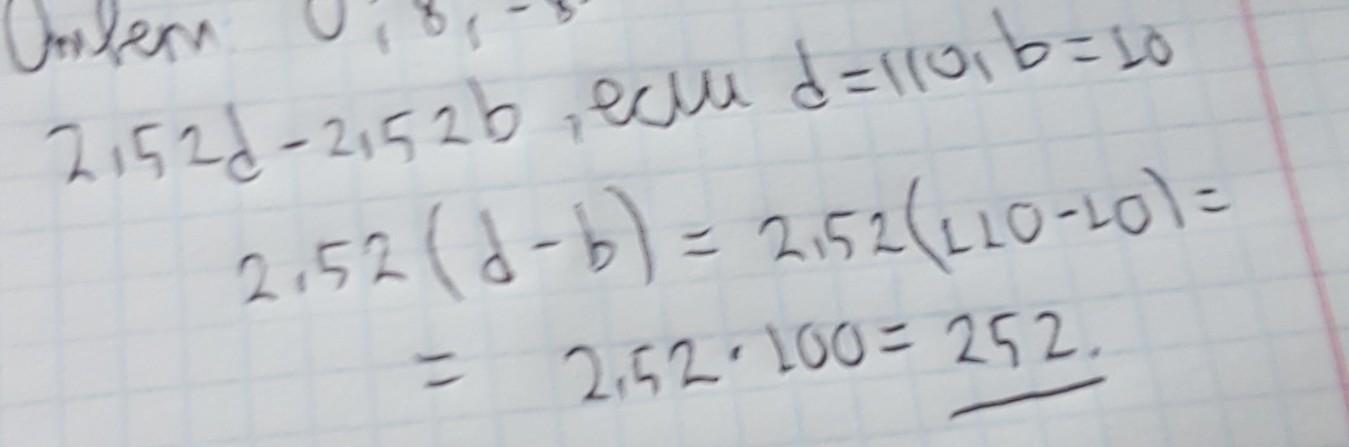 Ответ 0; 8; -8
2,52d - 2,52b, если d=110, b=10
2,52(d-b) = 2,52(110-10) =
= 2,52 · 100 = 252.